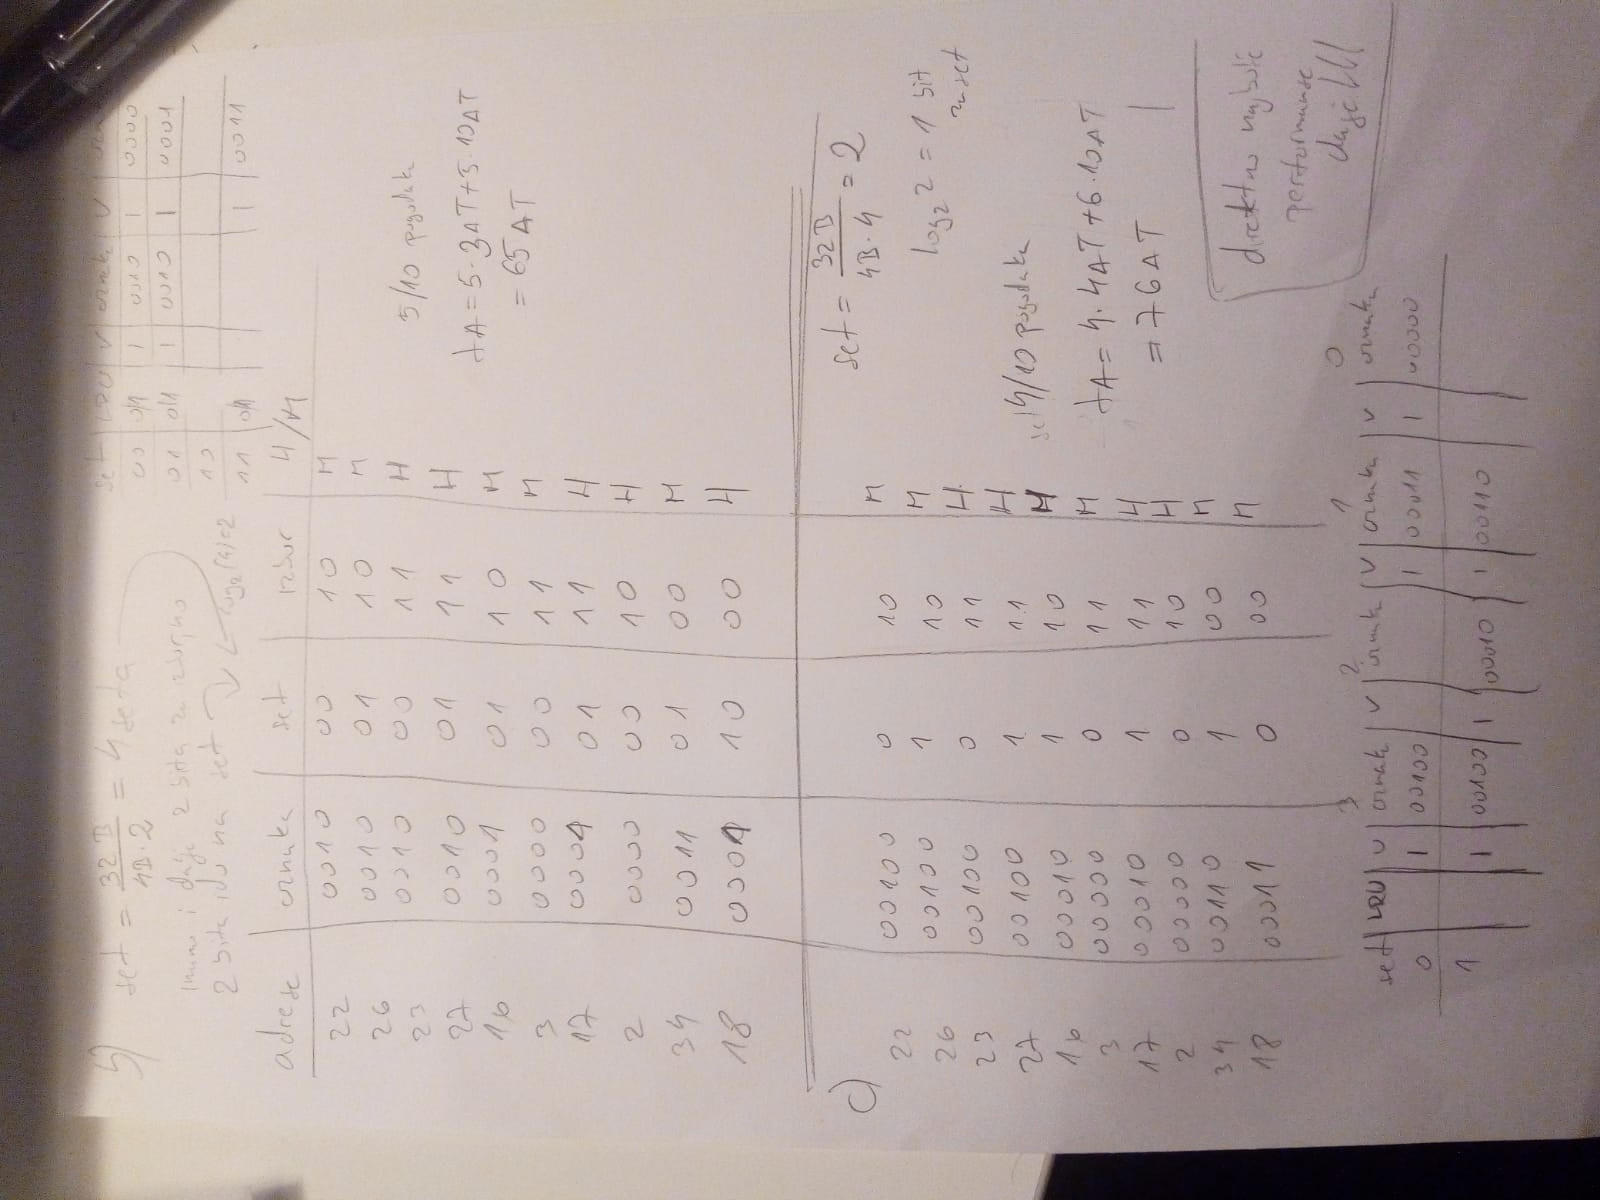 b)
set = 32B / 4B·2 = 4 seta
imamo i dalje 2 bita za
2 bita idu na set ↓ ← log₂(4)=2
set | LRU | V | oznaka | V
00 | 0/1 | 1 | 0010 | 1 | 0000
01 | 0/1 | 1 | 0010 | 1 | 0001
10
11 | 0/1 | 1 | 0011
adrese | oznaka | set | izbor | H/M
22 | 0010 | 00 | 10 | M
26 | 0010 | 01 | 10 | M
23 | 0010 | 00 | 11 | H
27 | 0010 | 01 | 11 | H
16 | 0001 | 01 | 10 | M
3 | 0000 | 00 | 11 | M
17 | 0001 | 01 | 11 | H
2 | 0000 | 00 | 10 | H
34 | 0011 | 01 | 00 | M
18 | 0001 | 10 | 00 | H
5/10 pogodak
tA = 5·3ΔT+5·10ΔT
= 65ΔT
c)
set = 32B / 4B·4 = 2
log₂ 2 = 1 bit
za set
22 | 00100 | 0 | 10 | M
26 | 00100 | 1 | 10 | M
23 | 00100 | 0 | 11 | H
27 | 00100 | 1 | 11 | H
16 | 00010 | 1 | 10 | M
3 | 00000 | 0 | 11 | M
17 | 00010 | 1 | 11 | H
2 | 00000 | 0 | 10 | H
34 | 00110 | 1 | 00 | M
18 | 00011 | 0 | 00 | M
4/10 pogodaka
tA = 4·4ΔT+6·10ΔT
= 76ΔT
direktno najbolje
performanse
daje!!!
3 2 1 0
set | LRU | V | oznak | V | oznak | V | oznaka | V | oznaka
0 | 1 | 00100 | 1 | 00011 | 1 | 00000
1 | 1 | 00100 | 1 | 00010 | 1 | 00110